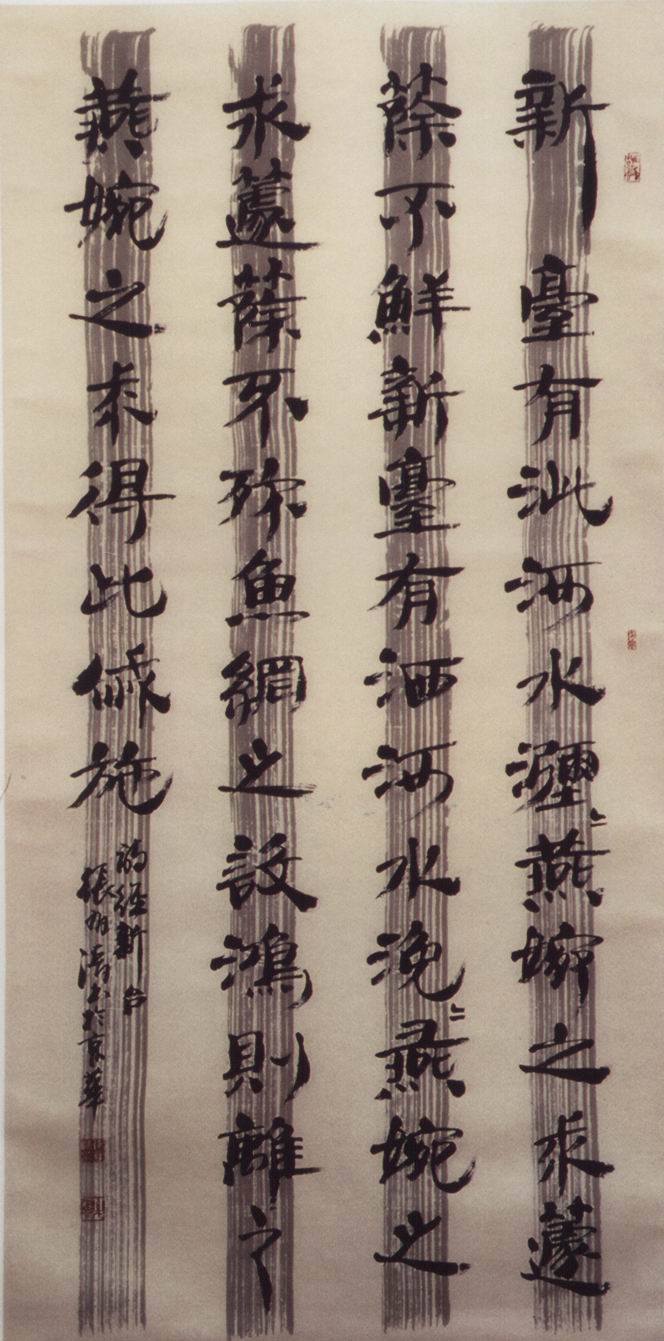 新臺有泚河水瀰〻燕婉之求蘧
蒢不鮮新臺有洒河水浼〻燕婉之
求蘧蒢不殄魚網之設鴻則離之
燕婉之求得此傶施
詩經新台
張 书於京華